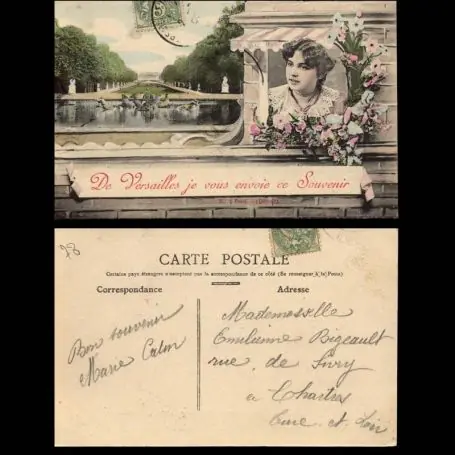 De Versailles je vous envoie ce Souvenir
78
CARTE POSTALE
Certains pays étrangers n'acceptent pas la correspondance de ce côté (Se renseigner à la Poste)
Correspondance
Adresse
Bon souvenir
Marie
Mademoiselle
Bigeault
rue de
à Chartres
Eure et Loir